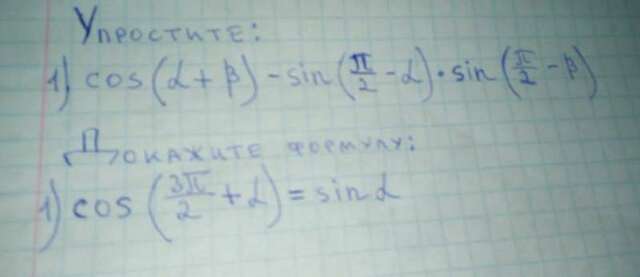 Упростите:
1) cos(α + β) - sin(π/2 - α) · sin(π/2 - β)
Докажите формулу:
1) cos(3π/2 + α) = sin α